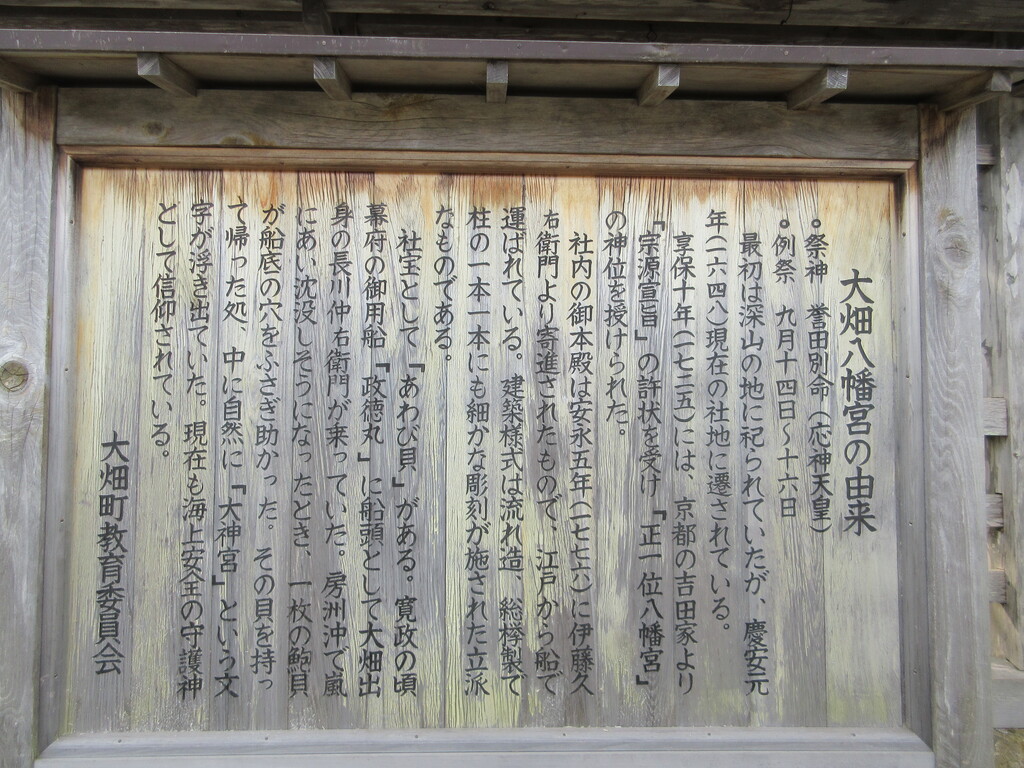 大畑八幡宮の由来
○祭神　誉田別命（応神天皇）
○例祭　九月十四日～十六日
最初は深山の地に祀られていたが、慶安元
年（一六四八）現在の社地に遷されている。
享保十年（一七二五）には、京都の吉田家より
「宗源宣旨」の許状を受け「正一位八幡宮」
の神位を授けられた。
社内の御本殿は安永五年（一七七六）に伊藤久
右衛門より寄進されたもので、江戸から船で
運ばれている。建築様式は流れ造、総欅製で
柱の一本一本にも細かな彫刻が施された立派
なものである。
社宝として「あわび貝」がある。寛政の頃
幕府の御用船「政徳丸」に船頭として大畑出
身の長川仲右衛門が乗っていた。房洲沖で嵐
にあい沈没しそうになったとき、一枚の鮑貝
が船底の穴をふさぎ助かった。その貝を持っ
て帰った処、中に自然に「大神宮」という文
字が浮き出ていた。現在も海上安全の守護神
として信仰されている。
大畑町教育委員会